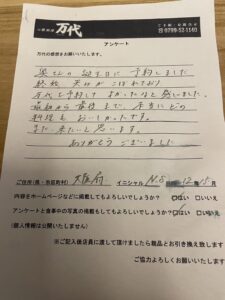 万代
☎0799-52-1160
アンケート
万代の感想をお願いいたします。
奥さんの誕生日に予約しました
終始 笑顔がこぼれており
万代を予約してよかったなと感じました。
最初から最後まで、本当にどの
料理もおいしかったです。
また来たいと思います。
ありがとうございました
ご住所(県・市区町村) 大阪府 イニシャル N.S 12月5月
内容をホームページなどに掲載してもよろしいでしょうか？ はい いいえ
アンケートと食事中の写真の掲載もしてもよろしいでしょうか？ はい いいえ
(個人情報は公開いたしません)
※ご記入後店員に渡して頂けましたら粗品とお引き換え致します
ご協力よろしくお願いいたします